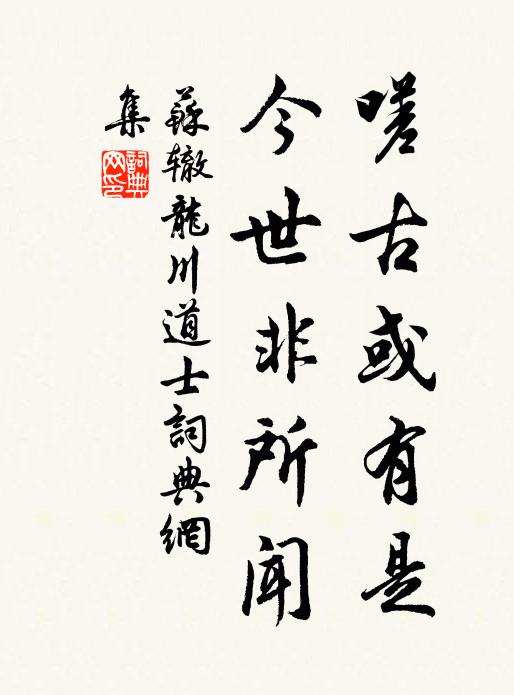 嗟古或有是
今世非所闻
蘇辙龍川道士詞典網
集
詞典
网印